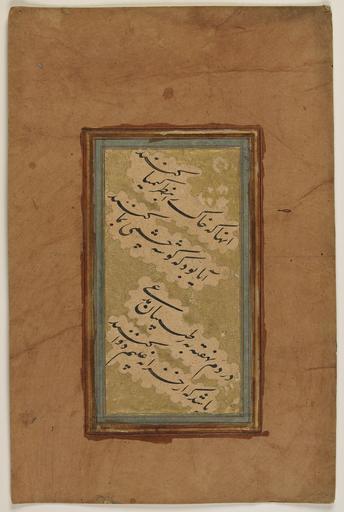 انها که خاک را بنظر کیمیا کنند
آیا بود که گوشه چشمی بما کنند
دردم نهفته به ز طبیبان مدعی
باشد که از خزانه غیبم دوا کنند